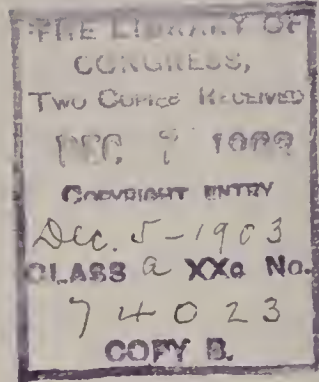 THE LIBRARY OF
CONGRESS,
TWO COPIES RECEIVED
DEC 1903
COPYRIGHT ENTRY
Dec. 5-1903
CLASS a XXc No.
74023
COPY B.